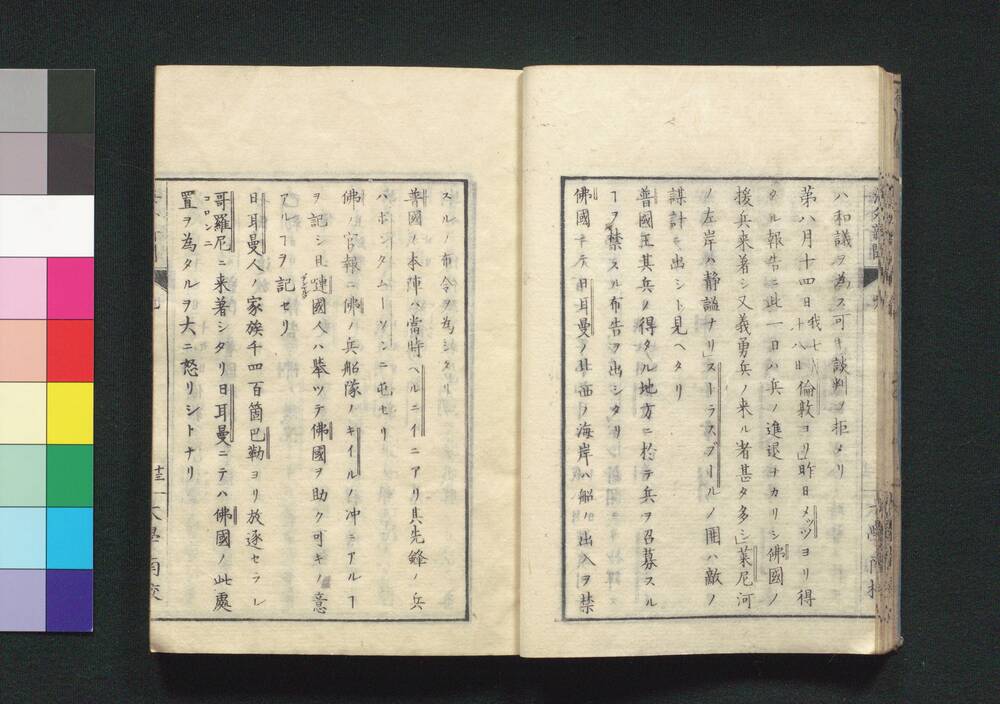 ハ和議ヲ為ス可キ談判ヲ拒メリ
第八月十四日我七月十八日倫敦ヨリ」昨日メッツヨリ得
タル報告ニ此一日ハ兵ノ進退ナカリシ佛國ノ
援兵来着シ又義勇兵ノ来ル者甚タ多シ」莱尼河
ノ左岸ハ静謐ナリ」ストラスブールノ囲ハ敵ノ
謀計ニ出シト見ヘタリ
普國王其兵ノ得タル地方ニ於テ兵ヲ召募スル
ヿヲ禁スル布告ヲ出シタリ
佛國ニテ日耳曼ノ北西ノ海岸ハ船ノ出入ヲ禁
スルノ布令ヲ為シタリ
普國ノ本陣ハ當時ヘルニイニアリ其先鋒ノ兵
ハポンタムーソンニ屯セリ
佛ノ官報ニ佛ノ兵船隊ノキイルノ冲ニアルヿ
ヲ記シ且嗹國人ハ挙ツテ佛國ヲ助ク可キノ意
アルヿヲ記セリ
日耳曼人ノ家族千四百箇巴勒ヨリ放逐セラレ
哥羅尼コロンニニ来着シタリ日耳曼ニテハ佛國ノ此處
置ヲ為タルヲ大ニ怒リシトナリ
大學南校